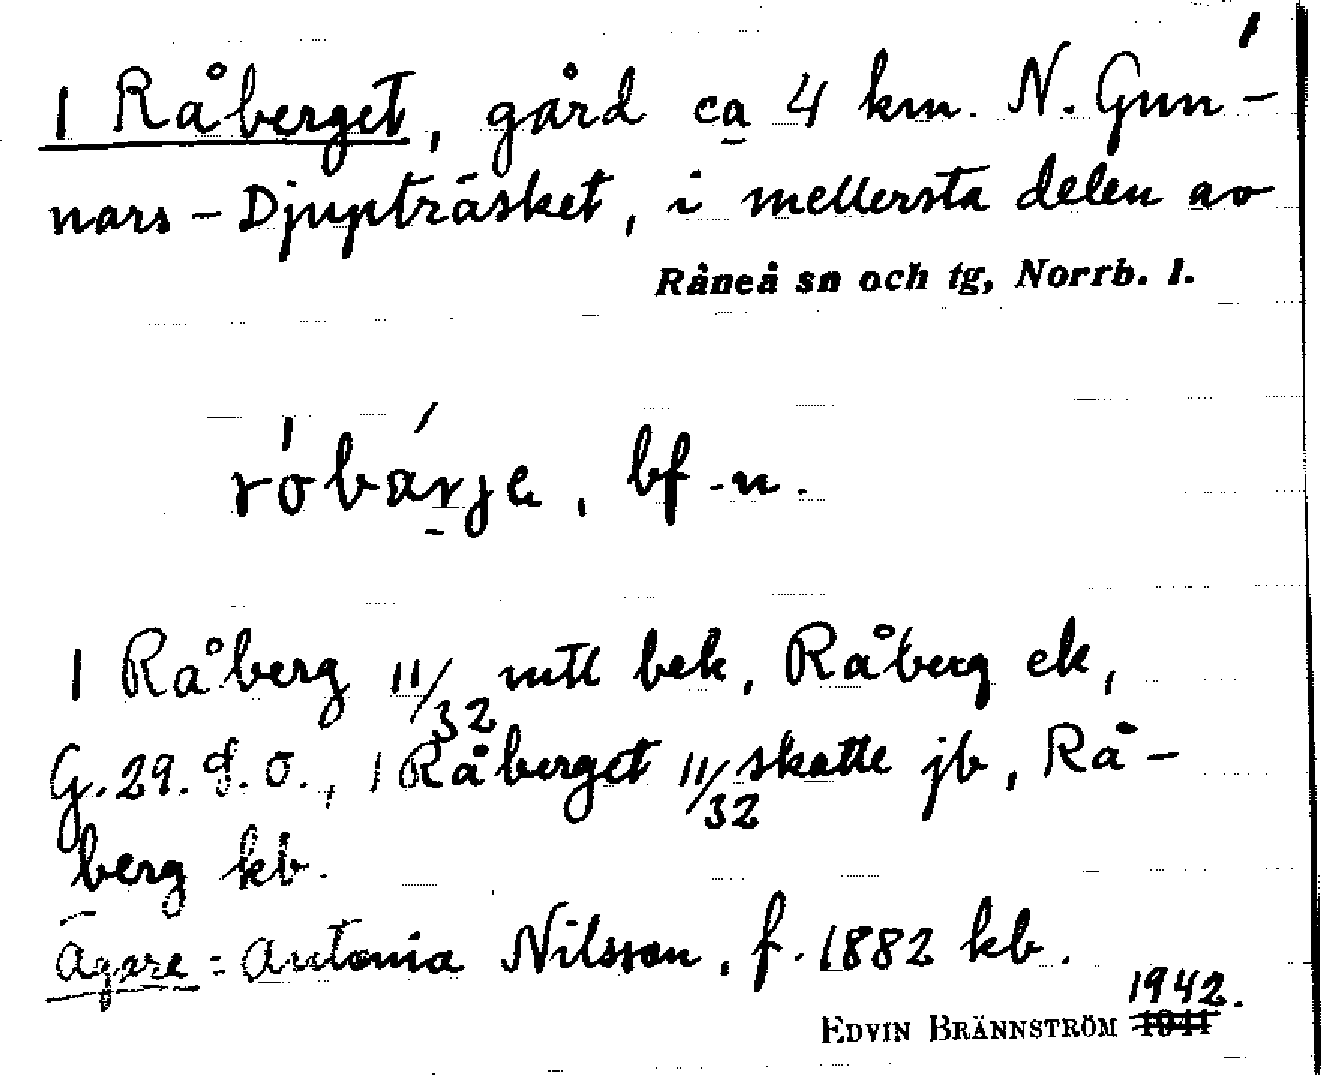 1 Råberget, gård ca 4 km. N. Gun-
nars-Djupträsket, i mellersta delen av
Råneå sn och tg, Norrb. l.
róbárje, bf-n.
1 Råberg 11/32 mtl bek, Råberg ek,
G.29. d. o., 1 Råberget 11/32 skatte jb, Rå-
berg kb.
Ägare: Antonia Nilsson, f. 1882 kb.
1942.
EDVIN BRÄNNSTRÖM 1941